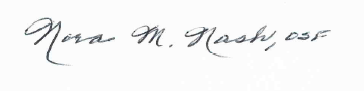 Nora M. Nash, OSF